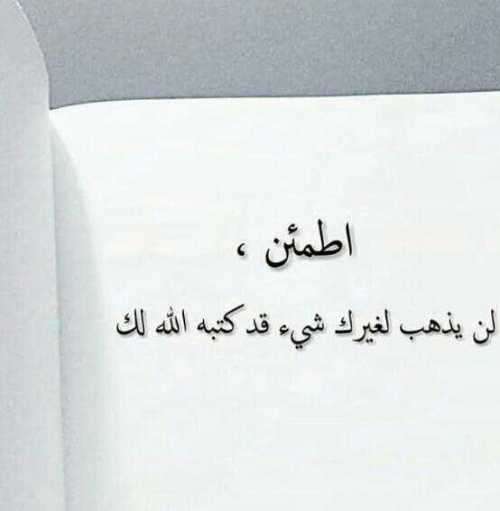 اطمئن ،
لن يذهب لغيرك شيء قد كتبه الله لك